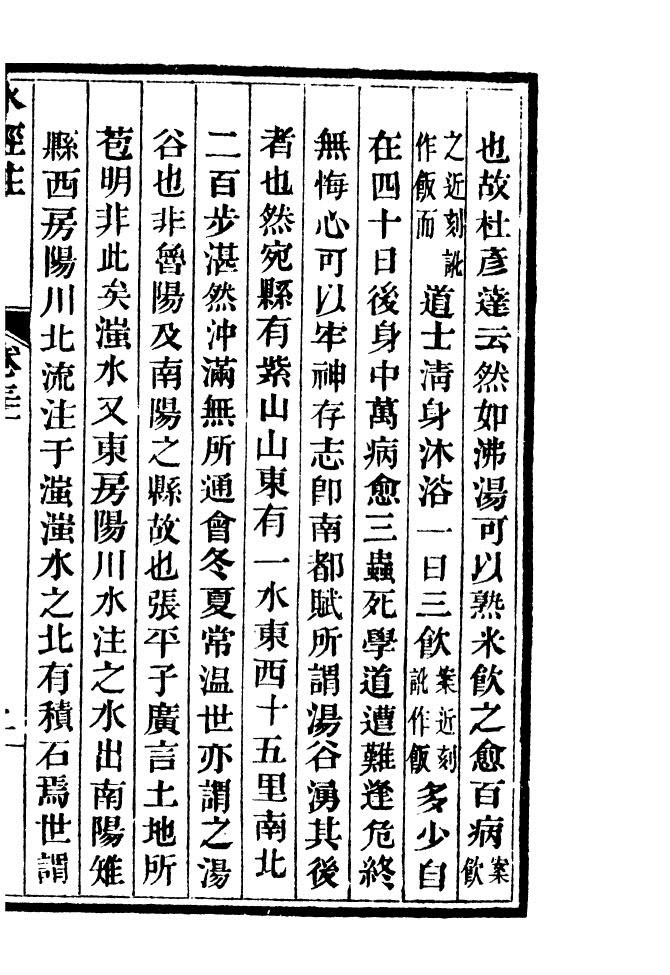 也故杜彥達云然如沸湯可以熟米飲之愈百病案飲
之近刻訛作飯而道士清身沐浴一日三飲案近刻訛作飯多少自
在四十日後身中萬病愈三蟲死學道遭難逢危終
無悔心可以牢神存志卽南都賦所謂湯谷湧其後
者也然宛縣有紫山山東有一水東西十五里南北
二百步湛然沖滿無所通會冬夏常温世亦謂之湯
谷也非魯陽及南陽之縣故也張平子廣言土地所
苞明非此矣滍水又東房陽川水注之水出南陽雉
縣西房陽川北流注于滍滍水之北有積石焉世謂
水經注